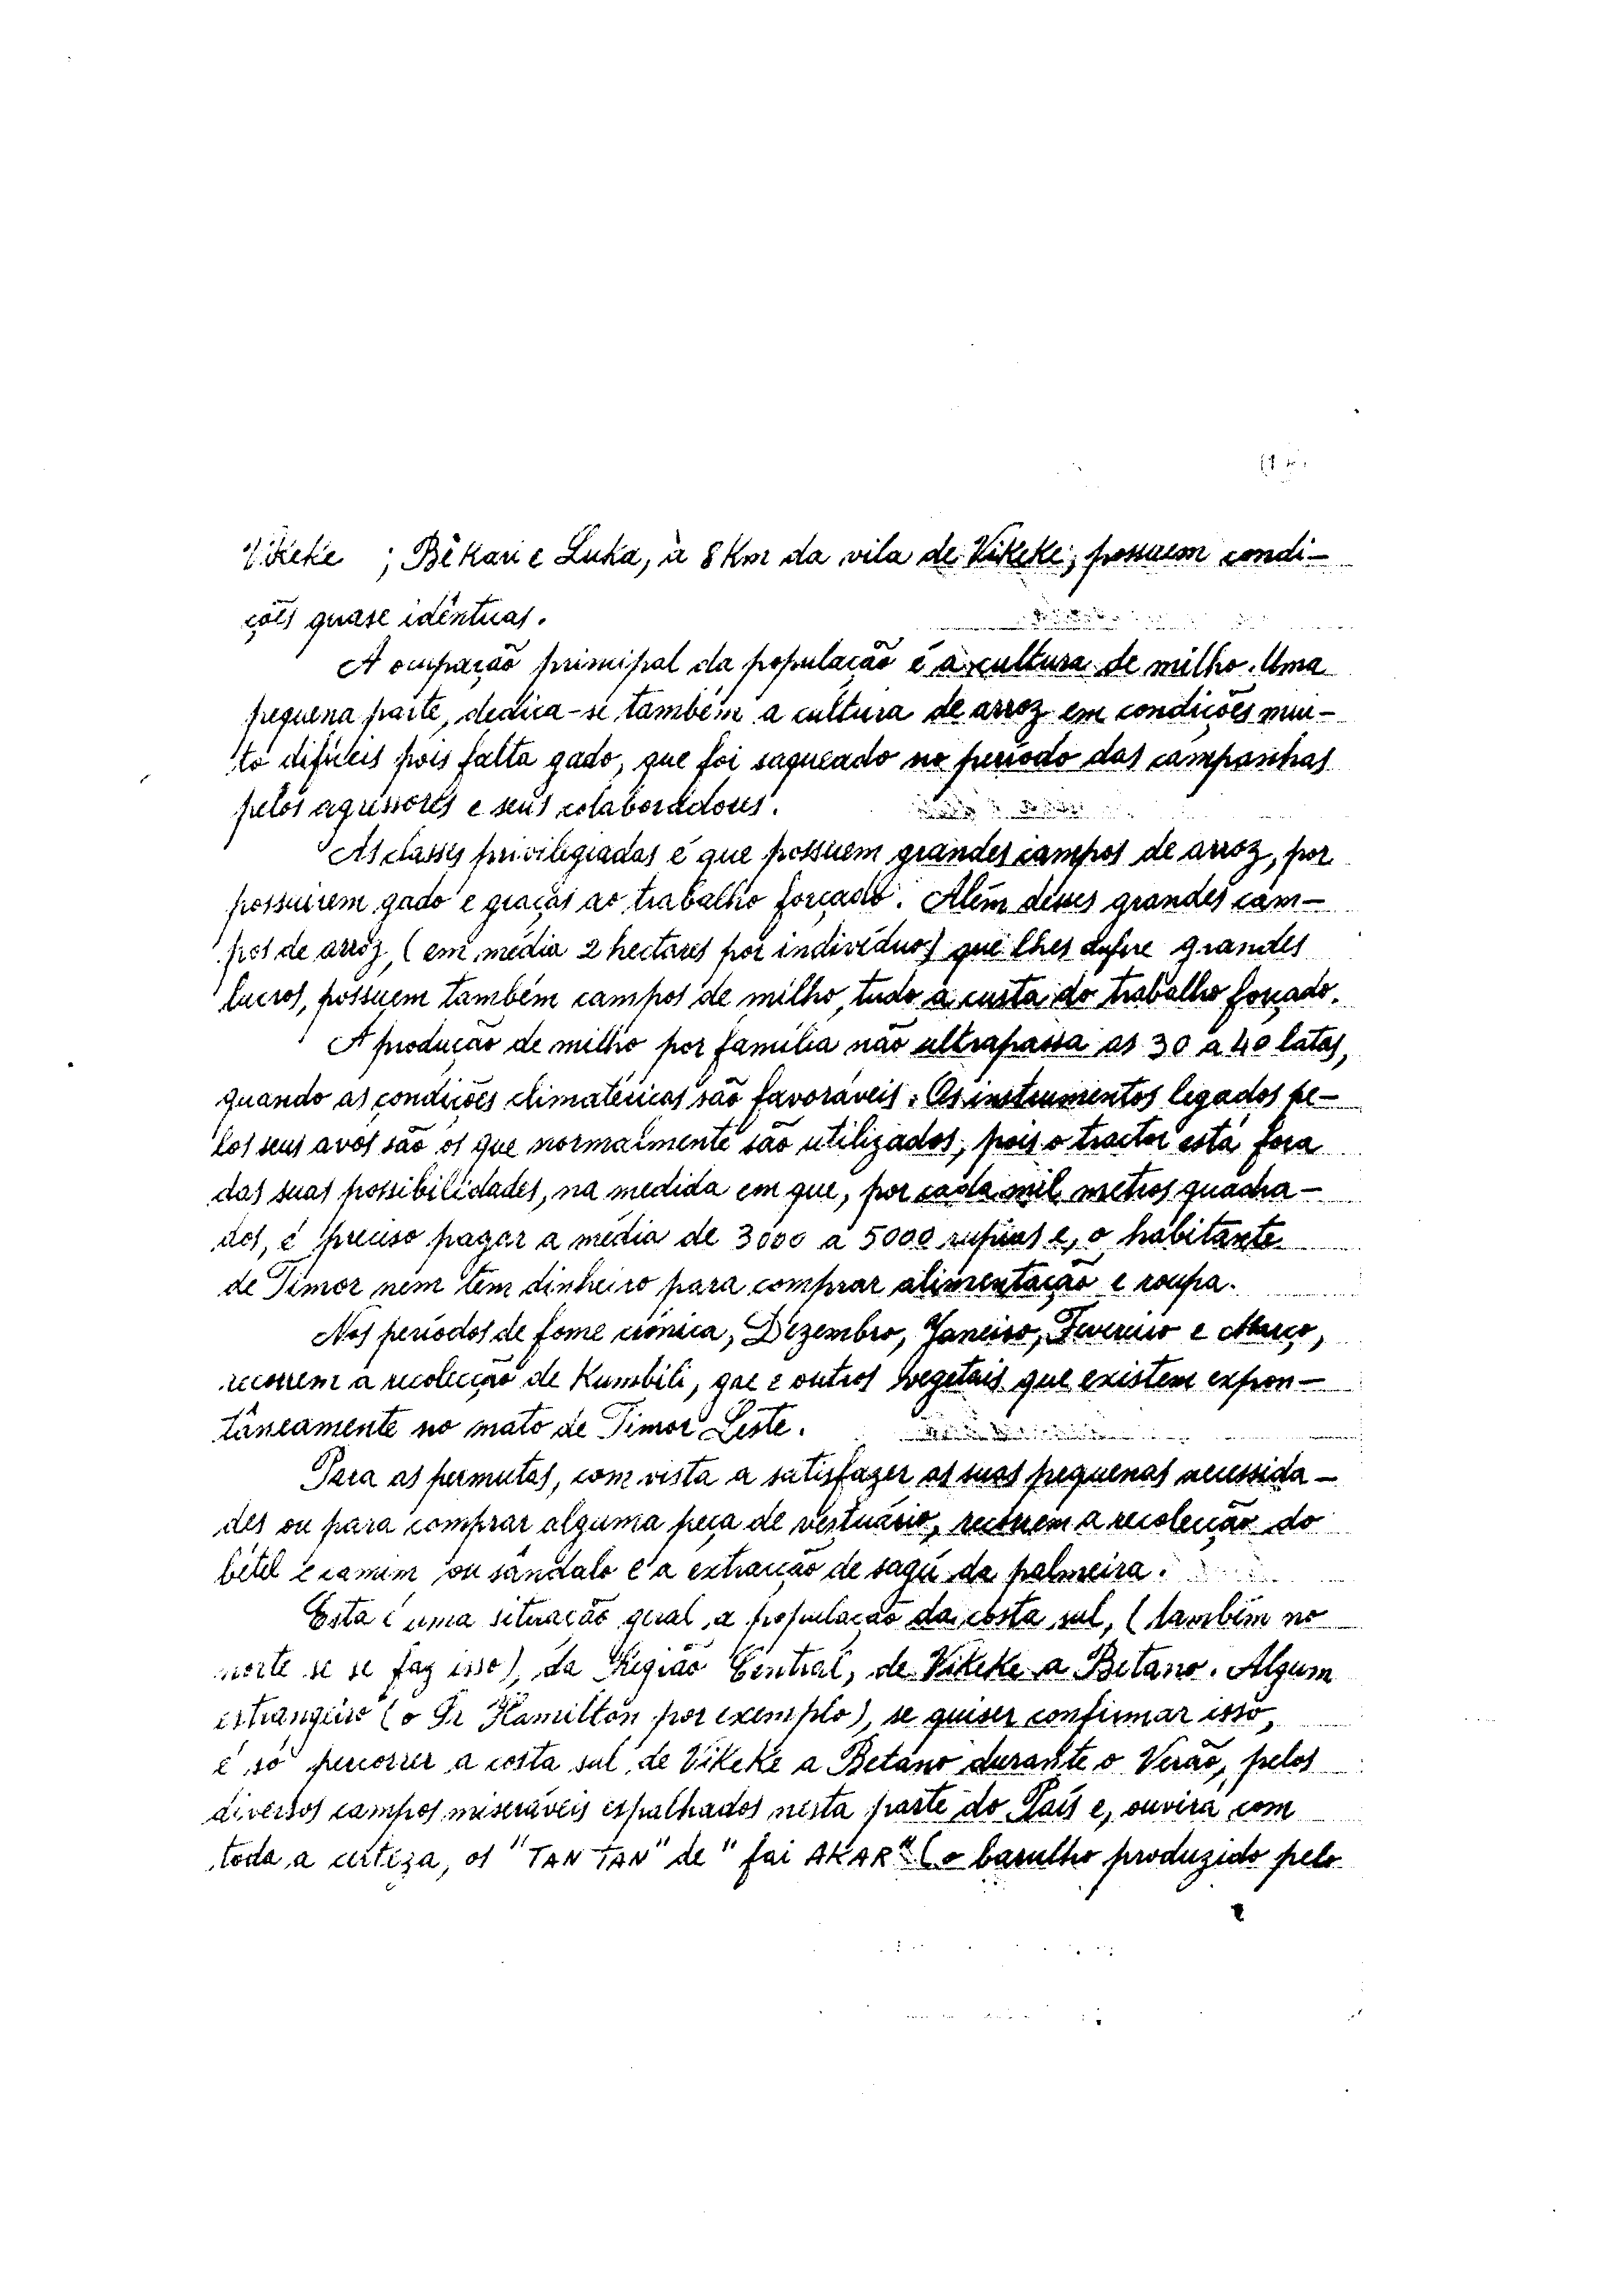 Vikeke ; Bêkari e Luka, à 8 Km da vila de Vikeke, possuem condi-
ções quase idênticas.
A ocupação principal da população é a cultura de milho. Uma
pequena parte, dedica-se também a cultura de arroz em condições mui-
to difíceis pois falta gado, que foi saqueado no período das campanhas
pelos agressores e seus colaboradores.
As classes privilegiadas é que possuem grandes campos de arroz, por
possuirem gado e graças ao trabalho forçado. Além desses grandes cam-
pos de arroz, (em média 2 hectares por indivíduo) que lhes defere grandes
lucros, possuem também campos de milho, tudo à custa do trabalho forçado.
A produção de milho por família não ultrapassa as 30 a 40 latas,
quando as condições climatéricas são favoráveis. Os instrumentos legados pe-
los seus avós são os que normalmente são utilizados, pois o tractor está fora
das suas possibilidades, na medida em que, por cada mil metros quadra-
dos, é preciso pagar a média de 3000 a 5000 rupias e, o habitante
de Timor nem tem dinheiro para comprar alimentação e roupa.
Nos períodos de fome crónica, Dezembro, Janeiro, Fevereiro e Março,
recorrem a recolecção de Kumbili, que e outros vegetais que existem expon-
tâneamente no mato de Timor Leste.
Para as permutas, com vista a satisfazer as suas pequenas necessida-
des ou para comprar alguma peça de vestuário, recorrem a recolecção do
bétel e camim ou sândalo e a extracção de sagú da palmeira.
Esta é uma situação geral a população da costa sul, (também no
norte se se faz isso), da Região Central, de Vikeke a Betano. Algum
estrangeiro (o Sr Hamilton por exemplo), se quiser confirmar isso,
é só percorrer a costa sul de Vikeke a Betano durante o Verão, pelos
diversos campos miseráveis espalhados nesta parte do País e, ouvirá com
toda a certeza, os "TAN TAN" de "fai AKAR" (o barulho produzido pelo